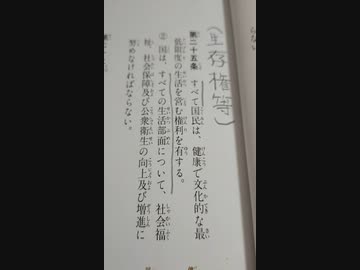 らない
（生存権等）
第二十五条　すべて国民は、健康で文化的な最
低限度の生活を営む権利を有する。
② 国は、すべての生活部面について、社会福
祉、社会保障及び公衆衛生の向上及び増進に
努めなければならない。